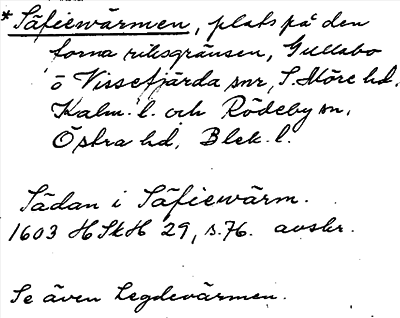 *Säfiewärmen, plats på den
forna riksgränsen, Gullabo
o Vissefjärda snr, S. Möre hd,
Kalm. l. och Rödeby sn,
Östra hd, Blek. l.
Sädan i Säfiewärm.
1603 HSkH 29, s. 76. avskr.
Se även Legdevärmen.